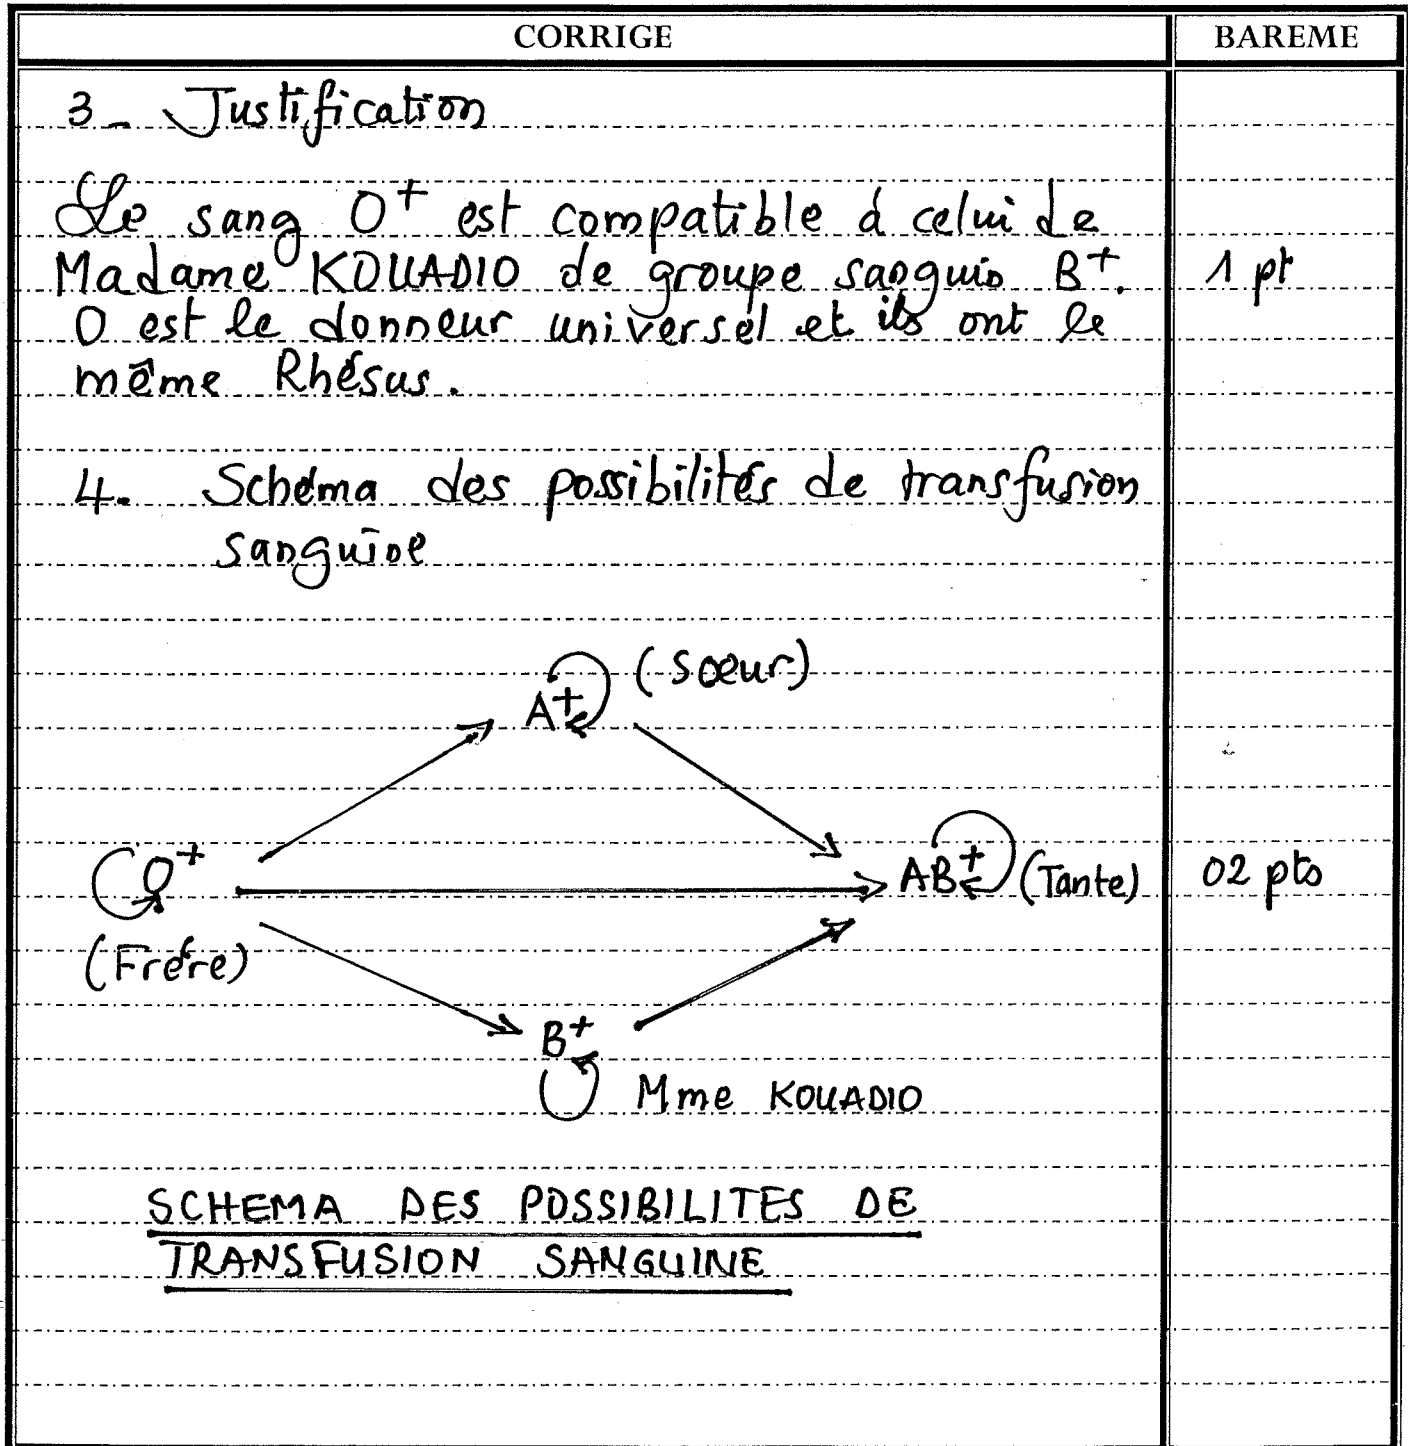 CORRIGE
BAREME
3_ Justification
Le sang O+ est compatible à celui de
Madame KOUADIO de groupe sanguin B+.
1 pt
O est le donneur universel et ils ont le
même Rhésus.
4. Schéma des possibilités de transfusion
sanguine
(Soeur)
A+
O+
AB+ (Tante)
02 pts
(Frère)
B+
Mme KOUADIO
SCHEMA DES POSSIBILITES DE
TRANSFUSION SANGUINE